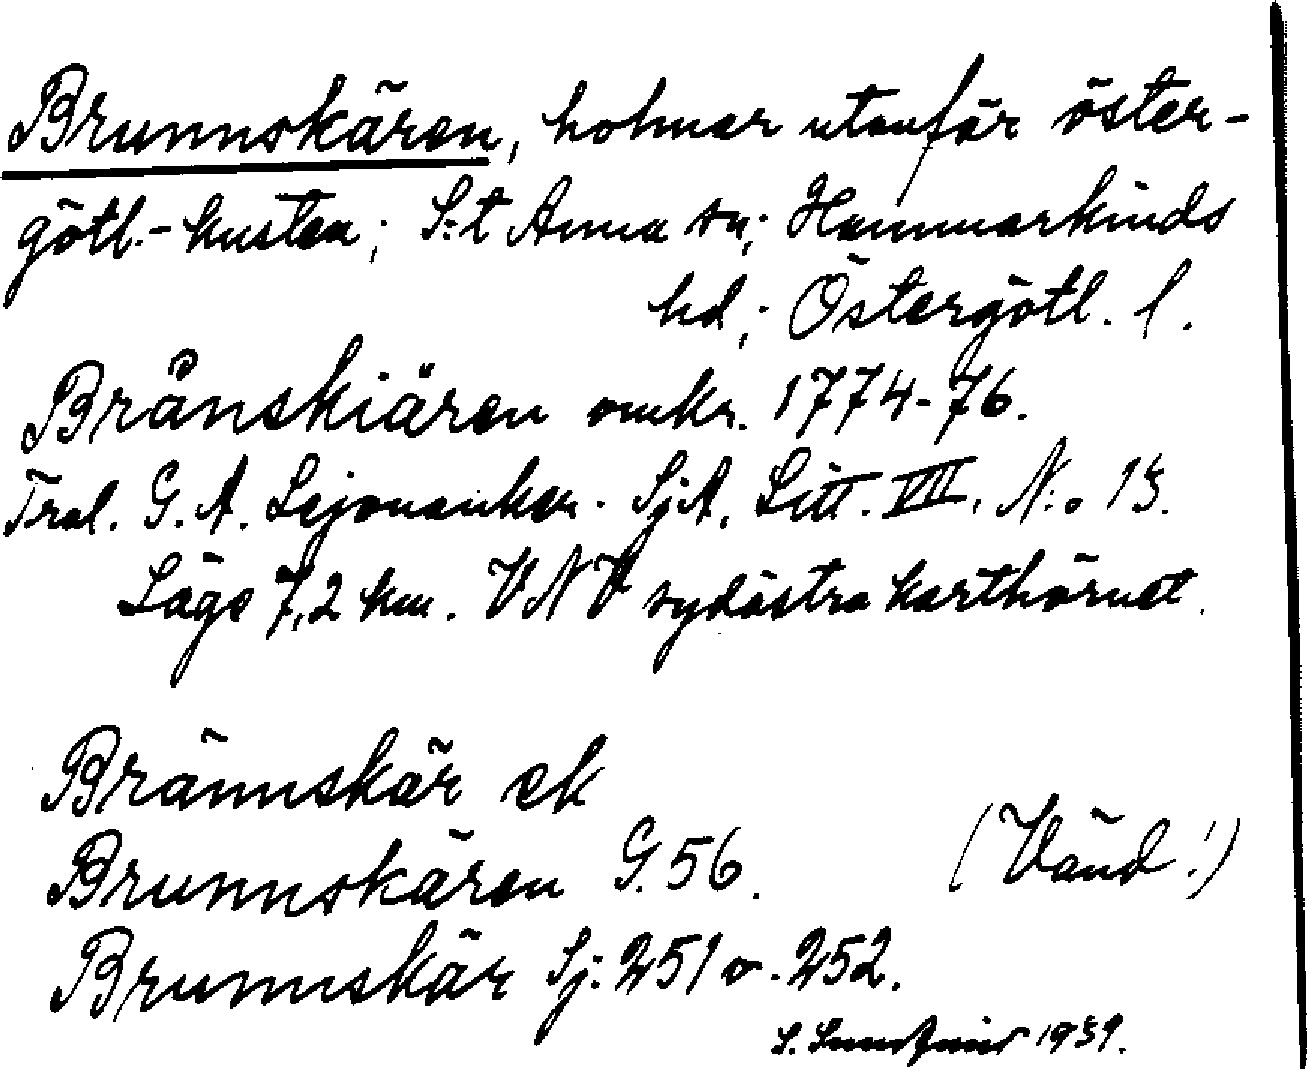 Brunnskären, holmar utanför öster-
götl.-kusten; S:t Anna sn; Hammarkinds
hd; Östergötl. l.
Brånskiären omkr. 1774-76.
Tral. G. A. Lejonanker. SjA. Litt. VIII. N:o 15.
Läge 7,2 km. VNV sydöstra karthörnet.
Brännskär ek
Brunnskären G. 56.
(Vänd!)
Brunnskär Sj. 251 o. 252.
S. 1939.